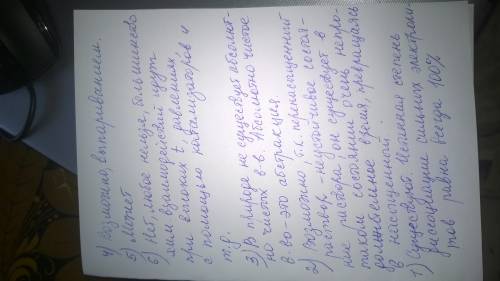 4) Возможно, выпариванием.
5) Может
6) Нет, любое нельзя, большинство
хим взаимодействий идут
при высоких t, давлениях
с помощью катализаторов и
т.д.
3) В природе не существует абсолют-
но чистых в-в. Абсолютно чистое
в-во - это абстракция
2) Возможно т.к. перенасыщенный
раствор - неустойчивое состоя-
ние раствора, он существует в
таком состоянии очень непро-
должительное время, превращаясь
в насыщенный.
1) Существуют. Истинная степень
диссоциации сильных электроли-
тов равна всегда 100%